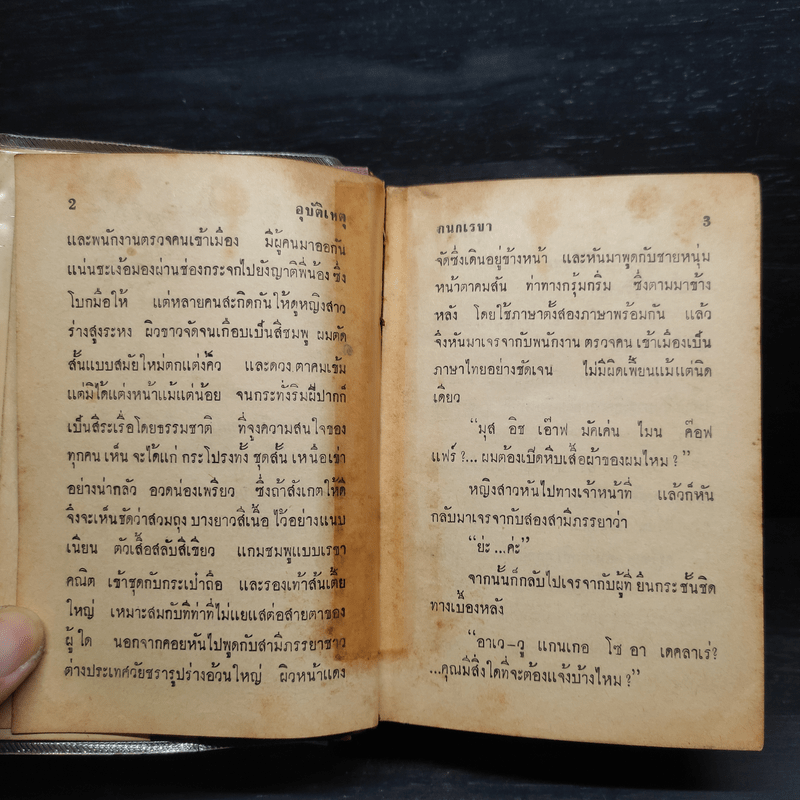 2
อุบัติเหตุ
และพนักงานตรวจคนเข้าเมือง มีผู้คนมาออกัน
แน่นชะเง้อมองผ่านช่องกระจกไปยังญาติพี่น้อง ซึ่ง
โบกมือให้ แต่หลายคนสะกิดกันให้ดูหญิงสาว
ร่างสูงระหง ผิวขาวจัดจนเกือบเป็นสีชมพู ผมตัด
สั้นแบบสมัยใหม่ตกแต่งคิ้ว และดวงตาคมเข้ม
แต่มิได้แต่งหน้าแม้แต่น้อย จนกระทั่งริมฝีปากก็
เป็นสีระเรื่อโดยธรรมชาติ ที่จูงความสนใจของ
ทุกคนเห็น จะได้แก่ กระโปรงทั้ง ชุดสั้น เหนือเข่า
อย่างน่ากลัว อวดน่องเพรียว ซึ่งถ้าสังเกตให้ดี
จึงจะเห็นชัดว่าสวมถุง บางยาวสีเนื้อ ไว้อย่างแนบ
เนียน ตัวเสื้อสลับสีเขียว แกมชมพูแบบเรขา
คณิต เข้าชุดกับกระเป๋าถือ และรองเท้าส้นเตี้ย
ใหญ่ เหมาะสมกับทีท่าที่ไม่แยแสต่อสายตาของ
ผู้ใด นอกจากคอยหันไปพูดกับสามีภรรยาชาว
ต่างประเทศวัยชรารูปร่างอ้วนใหญ่ ผิวหน้าแดง
กนกเรขา
3
จัดซึ่งเดินอยู่ข้างหน้า และหันมาพูดกับชายหนุ่ม
หน้าตาคมสัน ท่าทางกรุ้มกริ่ม ซึ่งตามมาข้าง
หลัง โดยใช้ภาษาทั้งสองภาษาพร้อมกัน แล้ว
จึงหันมาเจรจากับพนักงาน ตรวจคน เข้าเมืองเป็น
ภาษาไทยอย่างชัดเจน ไม่มีผิดเพี้ยนแม้แต่นิด
เดียว
“มุส อิช เอ๊าฟ มัคเค่น ไมน ค๊อฟ
แฟร์ ?... ผมต้องเปิดหีบเสื้อผ้าของผมไหม ?”
หญิงสาวหันไปทางเจ้าหน้าที่ แล้วก็หัน
กลับมาเจรจากับสองสามีภรรยาว่า
“ย่ะ ...ค่ะ”
จากนั้นก็กลับไปเจรจากับผู้ที่ ยืนกระชั้นชิด
ทางเบื้องหลัง
“อาเว-วู แกนเกอ โช อา เดคลาเร่?
...คุณมีสิ่งใดที่จะต้องแจ้งบ้างไหม ?”